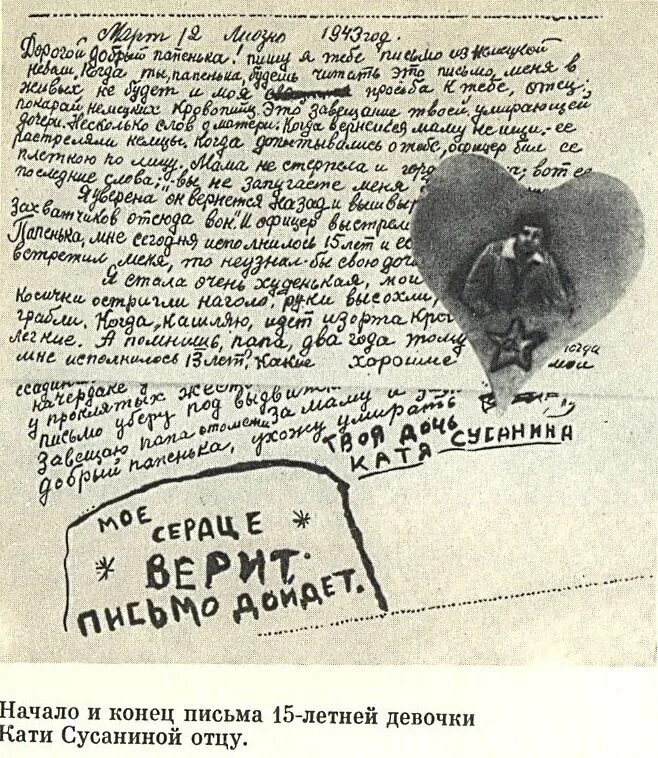 Март 12 Лиозно 1943 год.
Дорогой добрый папенька! пишу я тебе письмо из немецкой
неволи. Когда ты, папенька, будешь читать это письмо, меня в
живых не будет и моя просьба к тебе, отец:
покарай немецких кровопийц. Это завещание твоей умирающей
дочери. Несколько слов о матери. Когда вернешся маму не ищи.- ее
растреляли немцы. Когда допытывались о тебе, офицер бил ее
плеткою по лицу. Мама не стерпела и гор а; вот ее
последние слова: "вы не запугаете меня
Я уверена он вернется назад и вышвыр
захватчиков отсюда вон" И офицер выстрел
Папенька, мне сегодня исполнилось 15 лет и ес
встретил меня, то неузнал-бы свою доч
Я стала очень худенькая, мои
косички остригли наголо, руки высохли,
грабли. Когда кашляю, идет из орта кро
легкие. А помнишь, папа, два года тому
мне исполнилось 13 лет, какие хорошие мои
начердаке у
у проклятых жест
письмо уберу под выдвит
Завещаю папа отомсти за маму и
добрый папенька, ухожу умирать
ТВОЯ ДОЧЬ
КАТЯ СУСАНИНА
МОЕ
СЕРДЦЕ
ВЕРИТ.
ПИСЬМО ДОЙДЕТ.
Начало и конец письма 15-летней девочки
Кати Сусаниной отцу.